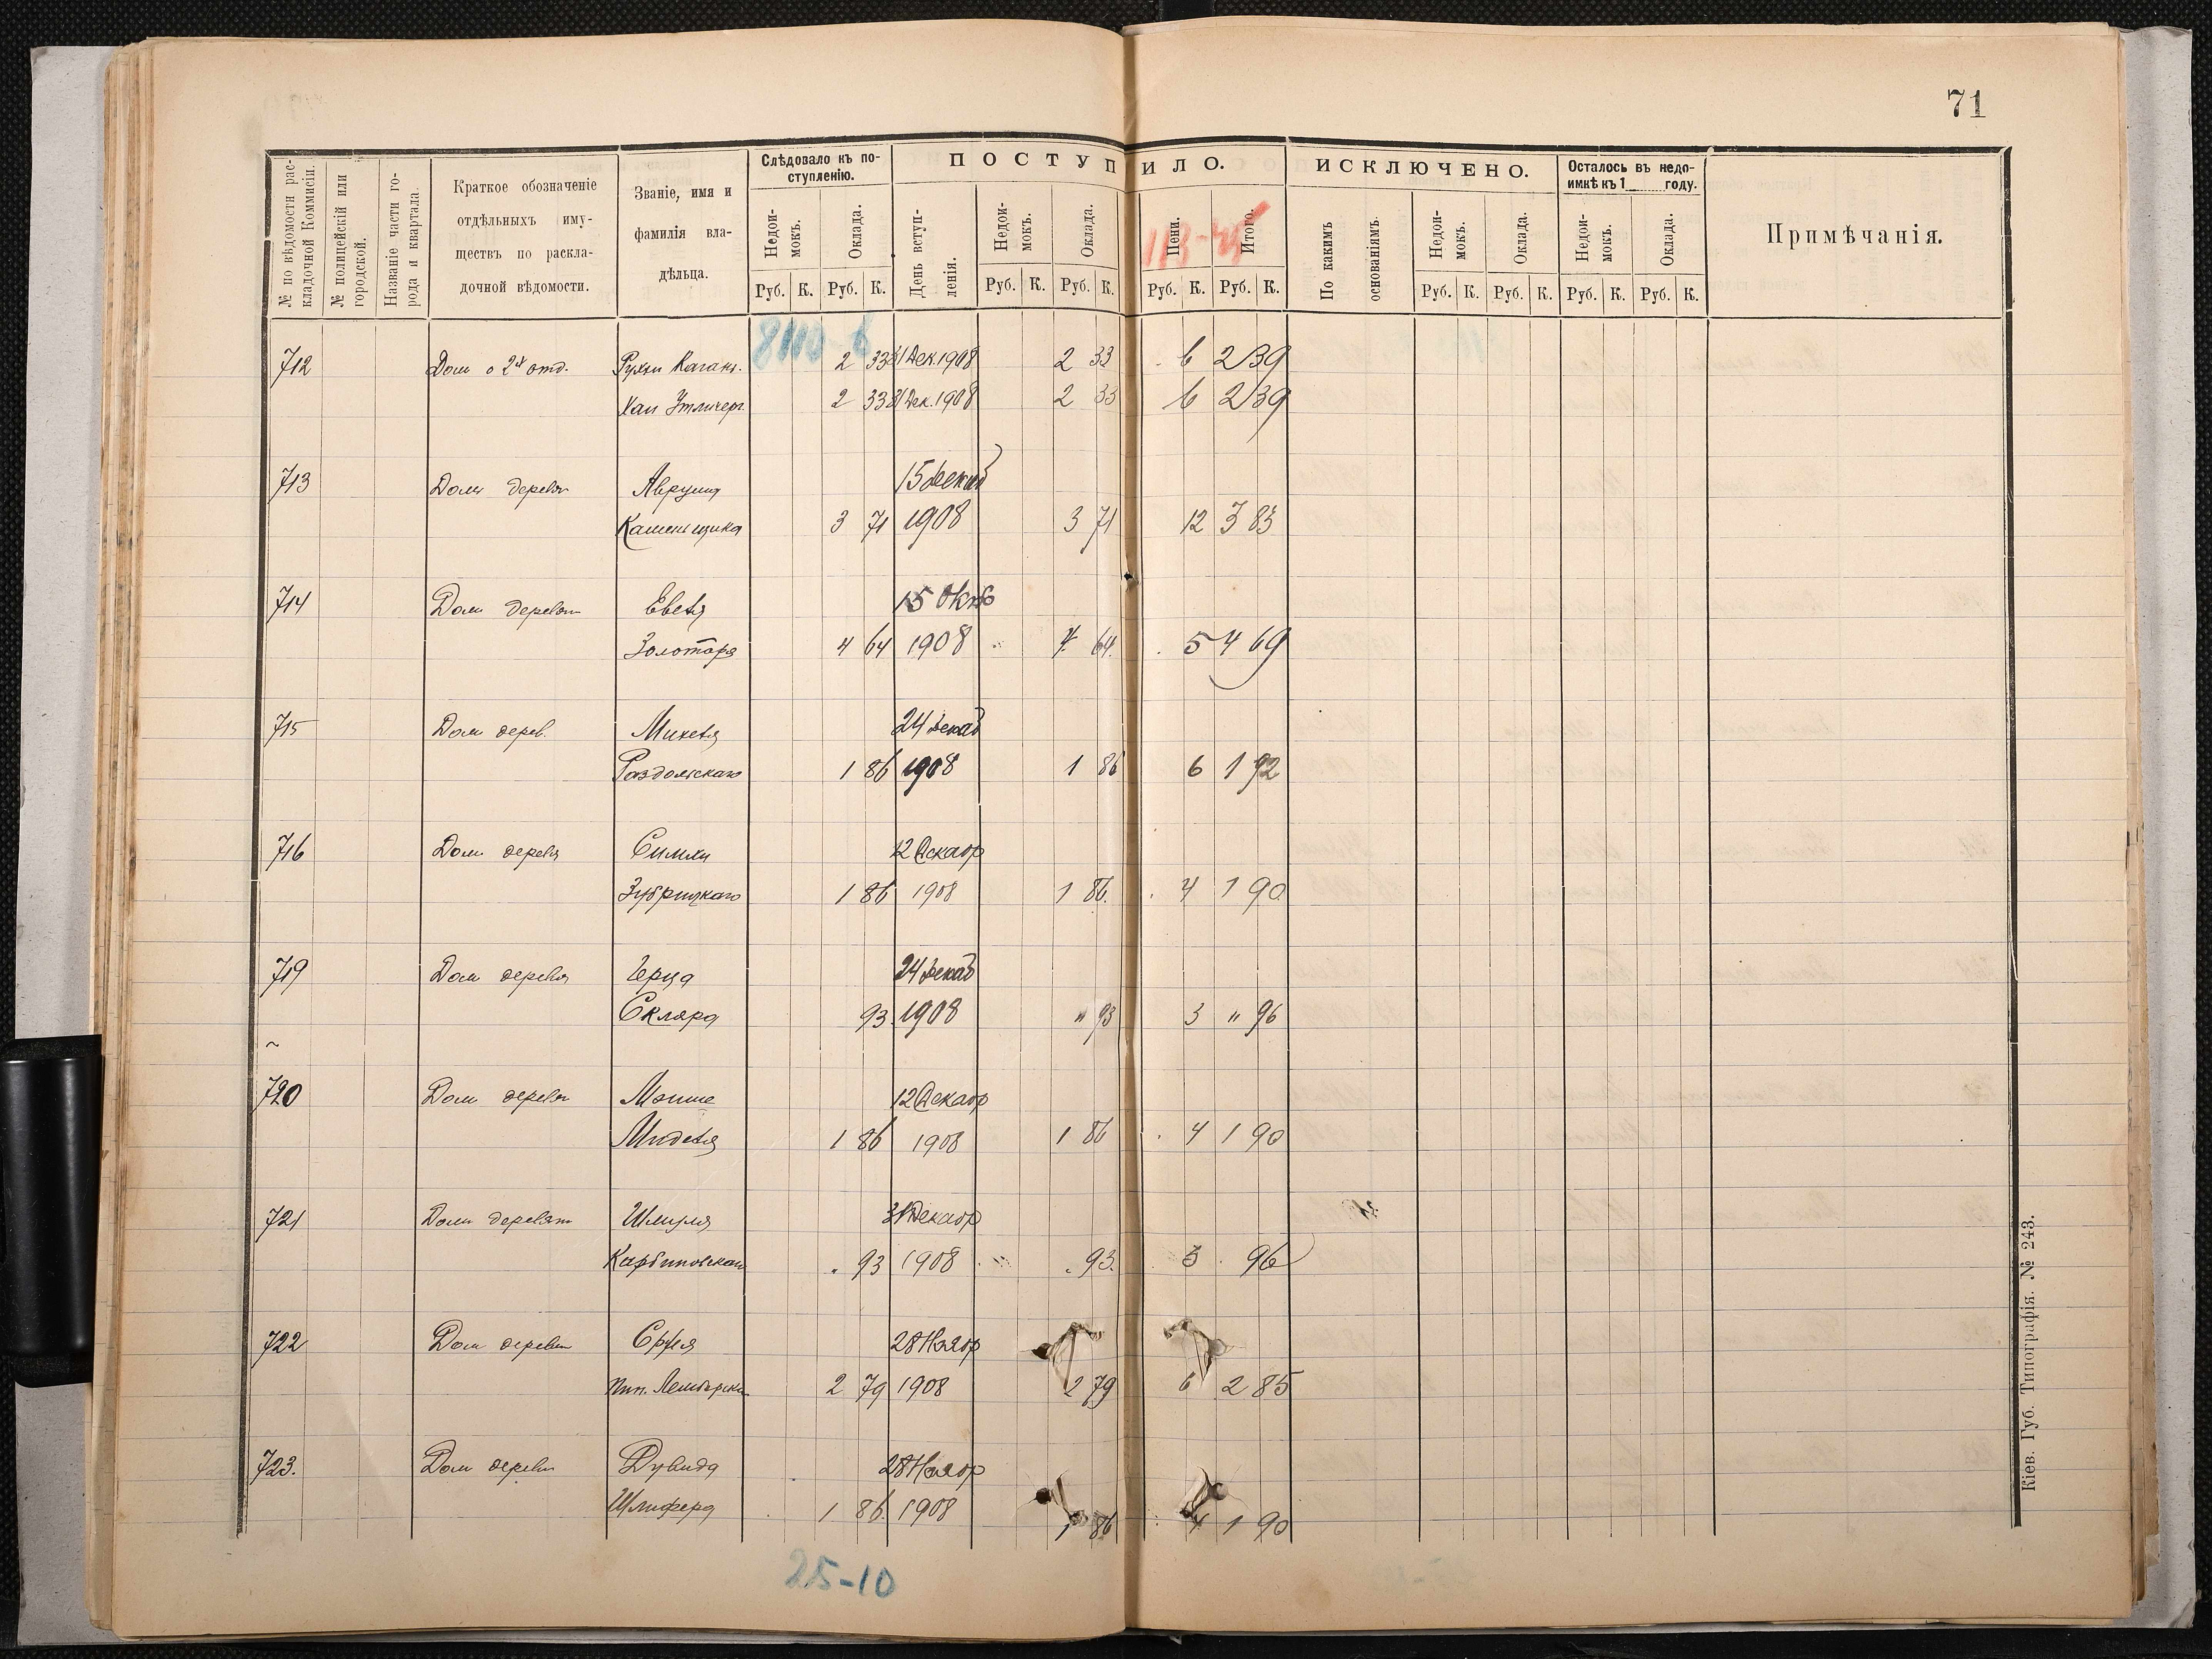 71
№ по вѣдомости рас-
кладочной Коммисіи.
№ полицейскій или
городской.
Названіе части го-
рода и квартала.
Краткое обозначеніе
отдѣльныхъ иму-
ществъ по раскла-
дочной вѣдомости.
Званіе, имя и
фамилія вла-
дѣльца.
Слѣдовало къ по-
ступленію.
Недои-
мокъ.
Оклада.
ПОСТУПИЛО.
День вступ-
ленія.
Недои-
мокъ.
Оклада.
Пени.
Итого.
ИСКЛЮЧЕНО.
По какимъ
основаніямъ.
Недои-
мокъ.
Оклада.
Осталось въ недо-
имкѣ къ 1 году.
Недои-
мокъ.
Оклада.
Примѣчанія.
Руб. К. Руб. К. Руб. К. Руб. К. Руб. К. Руб. К. Руб. К. Руб. К. Руб. К. Руб. К.
712 Дом о 2х отд. Рухли Каган. 2 33 31 Дек. 1908 2 33 6 2 39
Хаи 2 33 31 Дек. 1908 2 33 6 2 39
713 Домъ деревян Аврума 15 декаб
Каменьщика 3 71 1908 3 71 12 3 83
714 Дом деревян Евеля 15 Октб
Золотаря 4 64 1908 4 64. 5 4 69
715 Дом дерев. Михеля 24 декаб
Раздольскаго 1 86 1908 1 86 6 1 92
716 Дом деревя Симхи 12 Декабр
Зубрицкаго 1 86 1908 1 86. 4 1 90
719 Дом деревя Герца 24 декаб
Скляра 93 1908 " 93 3 " 96
720 Дом деревя Мошие 12 Декабр
1 86 1908 1 86 4 1 90
721 Дом деревян Шмуля 31 Декабр
Карбиновскаго 93 1908 93. 3 96
722 Дом деревян Сруля 28 Ноябр
2 79 1908 2 79 6 2 85
723. Дом деревя Дувида 28 Ноябр
Шлифера 1 86. 1908 1 86 4 1 90
25-10
Кіев. Губ. Типографія. № 243.